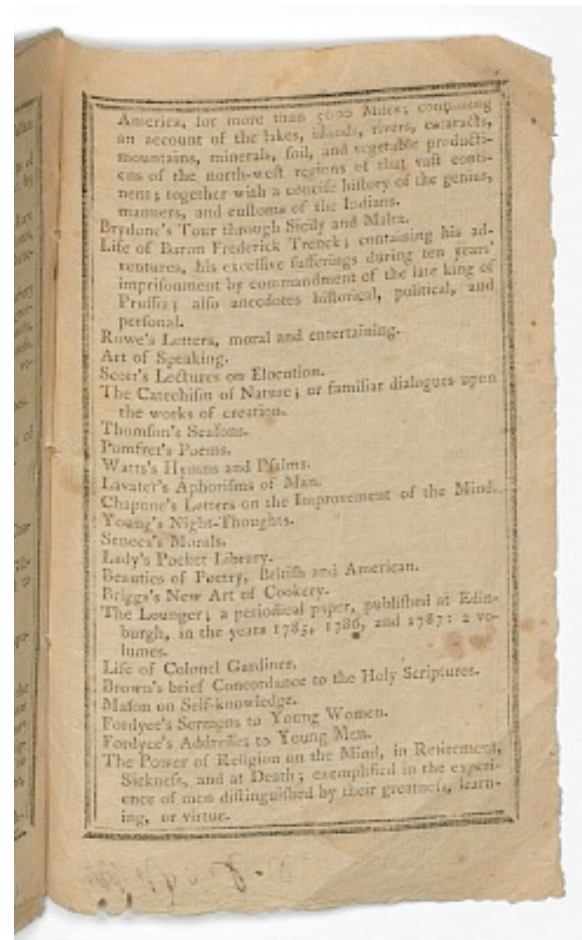 America, for more than 5000 Miles; containing
an account of the lakes, islands, rivers, cataracts,
mountains, minerals, soil, and vegetable producti-
ons of the north-west regions of that vast conti-
nent; together with a concise history of the genius,
manners, and customs of the Indians.
Brydone's Tour through Sicily and Malta.
Life of Baron Frederick Trenck; containing his ad-
ventures, his excessive sufferings during ten years
imprisonment by commandment of the late king of
Prussia; also anecdotes historical, political, and
personal.
Rowe's Letters, moral and entertaining.
Art of Speaking.
Scott's Lectures on Elocution.
The Catechism of Nature; or familiar dialogues upon
the works of creation.
Thomson's Seasons.
Pomfret's Poems.
Watts's Hymns and Psalms.
Lavater's Aphorisms of Man.
Chapone's Letters on the Improvement of the Mind.
Young's Night-Thoughts.
Seneca's Morals.
Lady's Pocket Library.
Beauties of Poetry, British and American.
Briggs's New Art of Cookery.
The Lounger; a periodical paper, published at Edin-
burgh, in the years 1785, 1786, and 1787: 2 vo-
lumes.
Life of Colonel Gardiner.
Brown's brief Concordance to the Holy Scriptures.
Mason on Self-knowledge.
Fordyce's Sermons to Young Women.
Fordyce's Addresses to Young Men.
The Power of Religion on the Mind, in Retirement,
Sickness, and at Death; exemplified in the experi-
ence of men distinguished by their greatness, learn-
ing, or virtue.